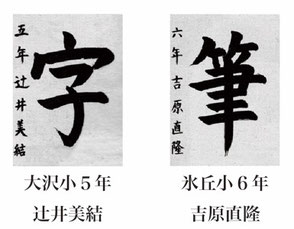 字
五年 辻井美結
大沢小５年
辻井美結
筆
六年 吉原直隆
氷丘小６年
吉原直隆